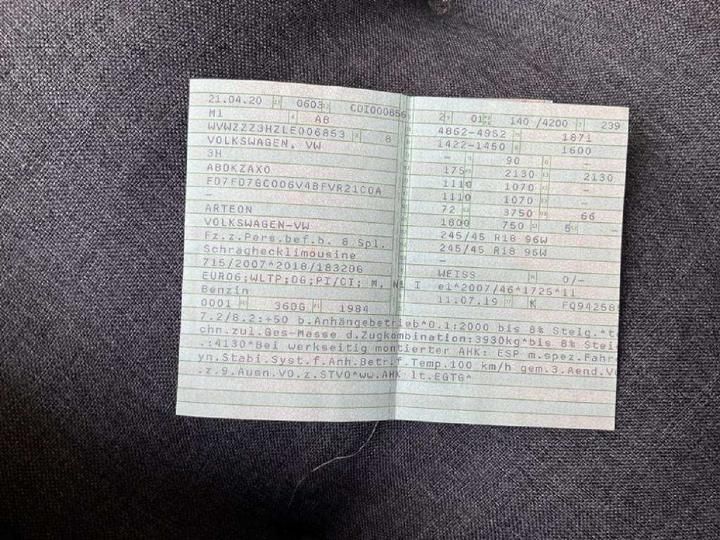 21.04.20 0603 CDI000856
M1 AB
WVWZZZ3HZLE006853 8
VOLKSWAGEN, VW
3H
ABDKZAX0
FD7FD7GC006V4BFVR21C0A
–
ARTEON
VOLKSWAGEN-VW
Fz.z.Pers.bef.b. 8 Spl.
Schräghecklimousine
715/2007*2018/1832DG
EURO6;WLTP;DG;PI/CI; M, N1 I
Benzin
0001 36DG 1984
2 01 140 /4200 239
4862-4952 1871
1422-1450 1600
– 90
175 2130 2130
1110 1070 –
1110 1070 –
72 3750 66
1800 750 5 –
245/45 R18 96W
245/45 R18 96W
–
WEISS 0/–
e1*2007/46*1725*11
11.07.19 K FQ94258
7.2/8.2:+50 b.Anhängebetrieb*0.1:2000 bis 8% Steig.*t
chn.zul.Ges-Masse d.Zugkombination:3930kg*bis 8% Stei
.:4130*Bei werkseitig montierter AHK: ESP m.spez.Fahr
yn.Stabi.Syst.f.Anh.Betr.f.Temp.100 km/h gem.3.Aend.V
.z.9.Ausn.VO.z.STVO*ww.AHK lt.EGTG*